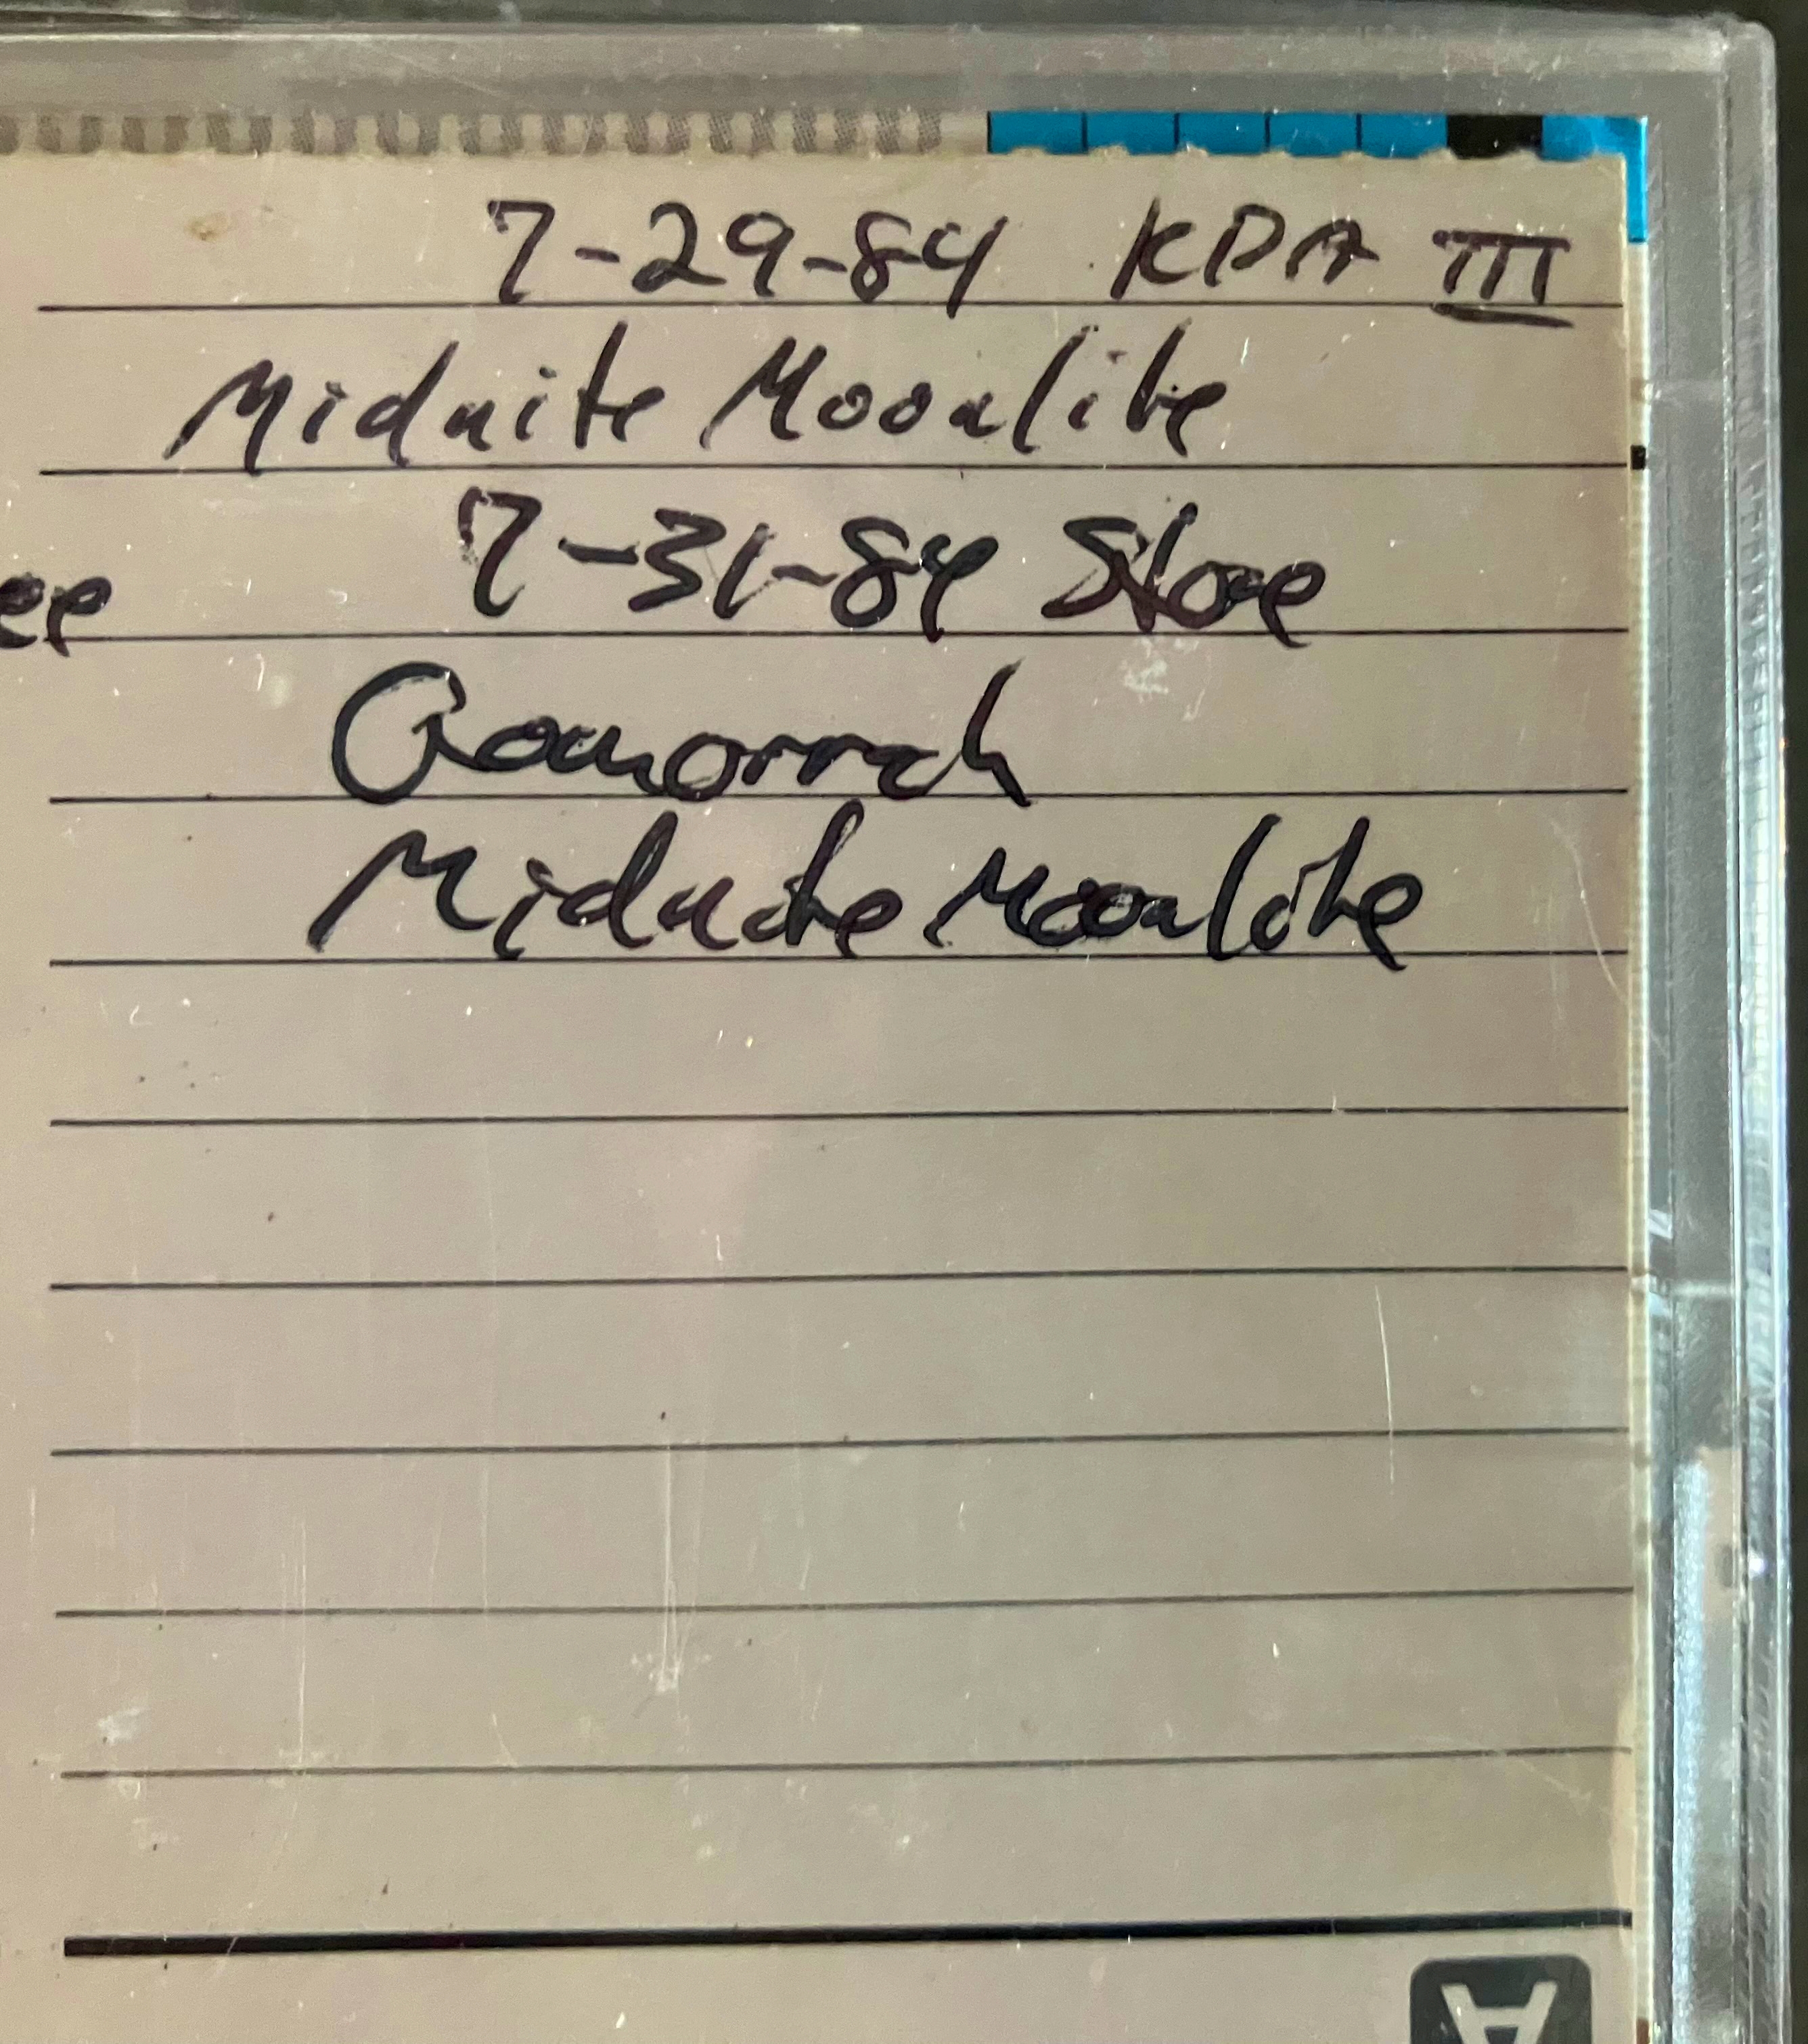 7-29-84 KPA III
Midnite Moonlite
7-31-84 Stone
Gomorrah
Midnite Moonlite
A